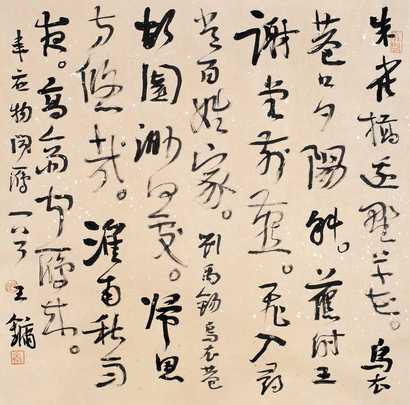 朱雀橋邊野草花。烏衣
巷口夕陽斜。舊時王
謝堂前燕。飛入尋
常百姓家。劉禹錫烏衣巷
故園渺何處。歸思
方悠哉。淮南秋雨
夜。高齋聞雁來。
韋應物聞雁 王鏞